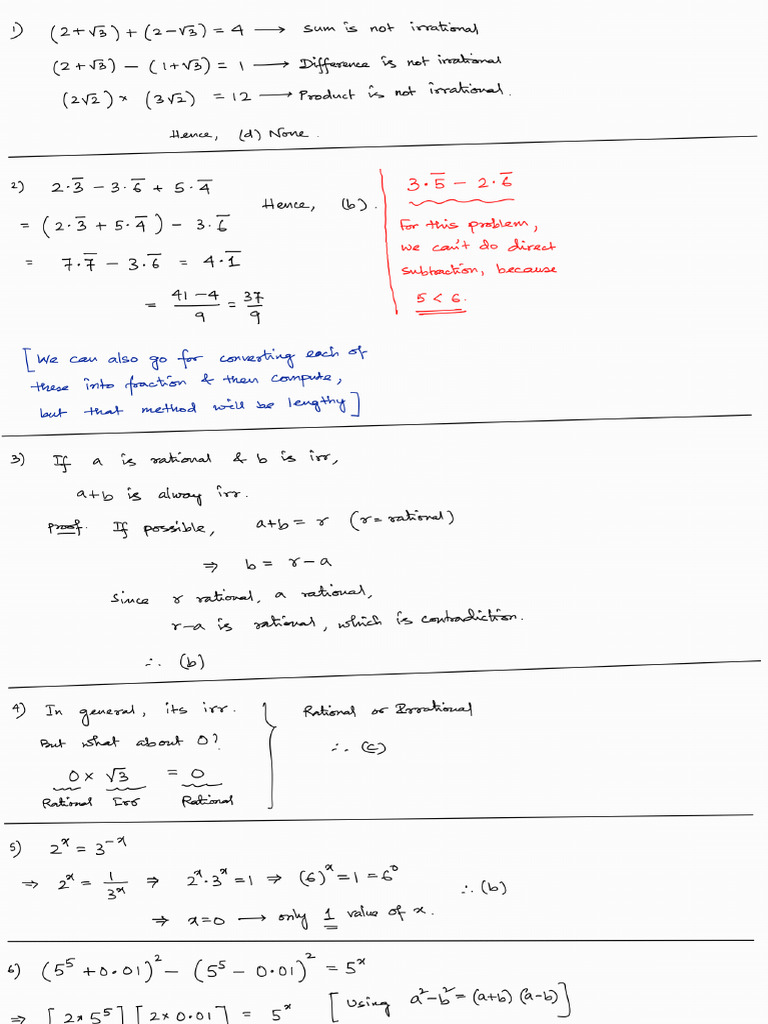 1) (2+√3) + (2-√3) = 4 → Sum is not irrational
(2+√3) - (1+√3) = 1 → Difference is not irrational
(2√2) × (3√2) = 12 → Product is not irrational.
Hence, (d) None.
2) 2.3̅ - 3.6̅ + 5.4̅
= (2.3̅ + 5.4̅) - 3.6̅
= 7.7̅ - 3.6̅ = 4.1̅
= (41-4)/9 = 37/9
Hence, (b).
3.5̅ - 2.6̅
For this problem,
we can't do direct
subtraction, because
5 < 6.
[We can also go for converting each of
these into fraction & then compute,
but that method will be lengthy]
3) If a is rational & b is irr,
a+b is alway irr.
Proof. If possible, a+b = r (r = rational)
⇒ b = r-a
Since r rational, a rational,
r-a is rational, which is contradiction.
∴ (b)
4) In general, its irr.
But what about 0?
0 × √3 = 0
Rational Irr Rational
Rational or Irrational
∴ (c)
5) 2ˣ = 3⁻ˣ
⇒ 2ˣ = 1/3ˣ ⇒ 2ˣ.3ˣ = 1 ⇒ (6)ˣ = 1 = 6⁰
⇒ x=0 → only 1 value of x.
∴ (b)
6) (5⁵ + 0.01)² - (5⁵ - 0.01)² = 5ˣ
⇒ [2×5⁵][2×0.01] = 5ˣ [Using a²-b² = (a+b)(a-b)]